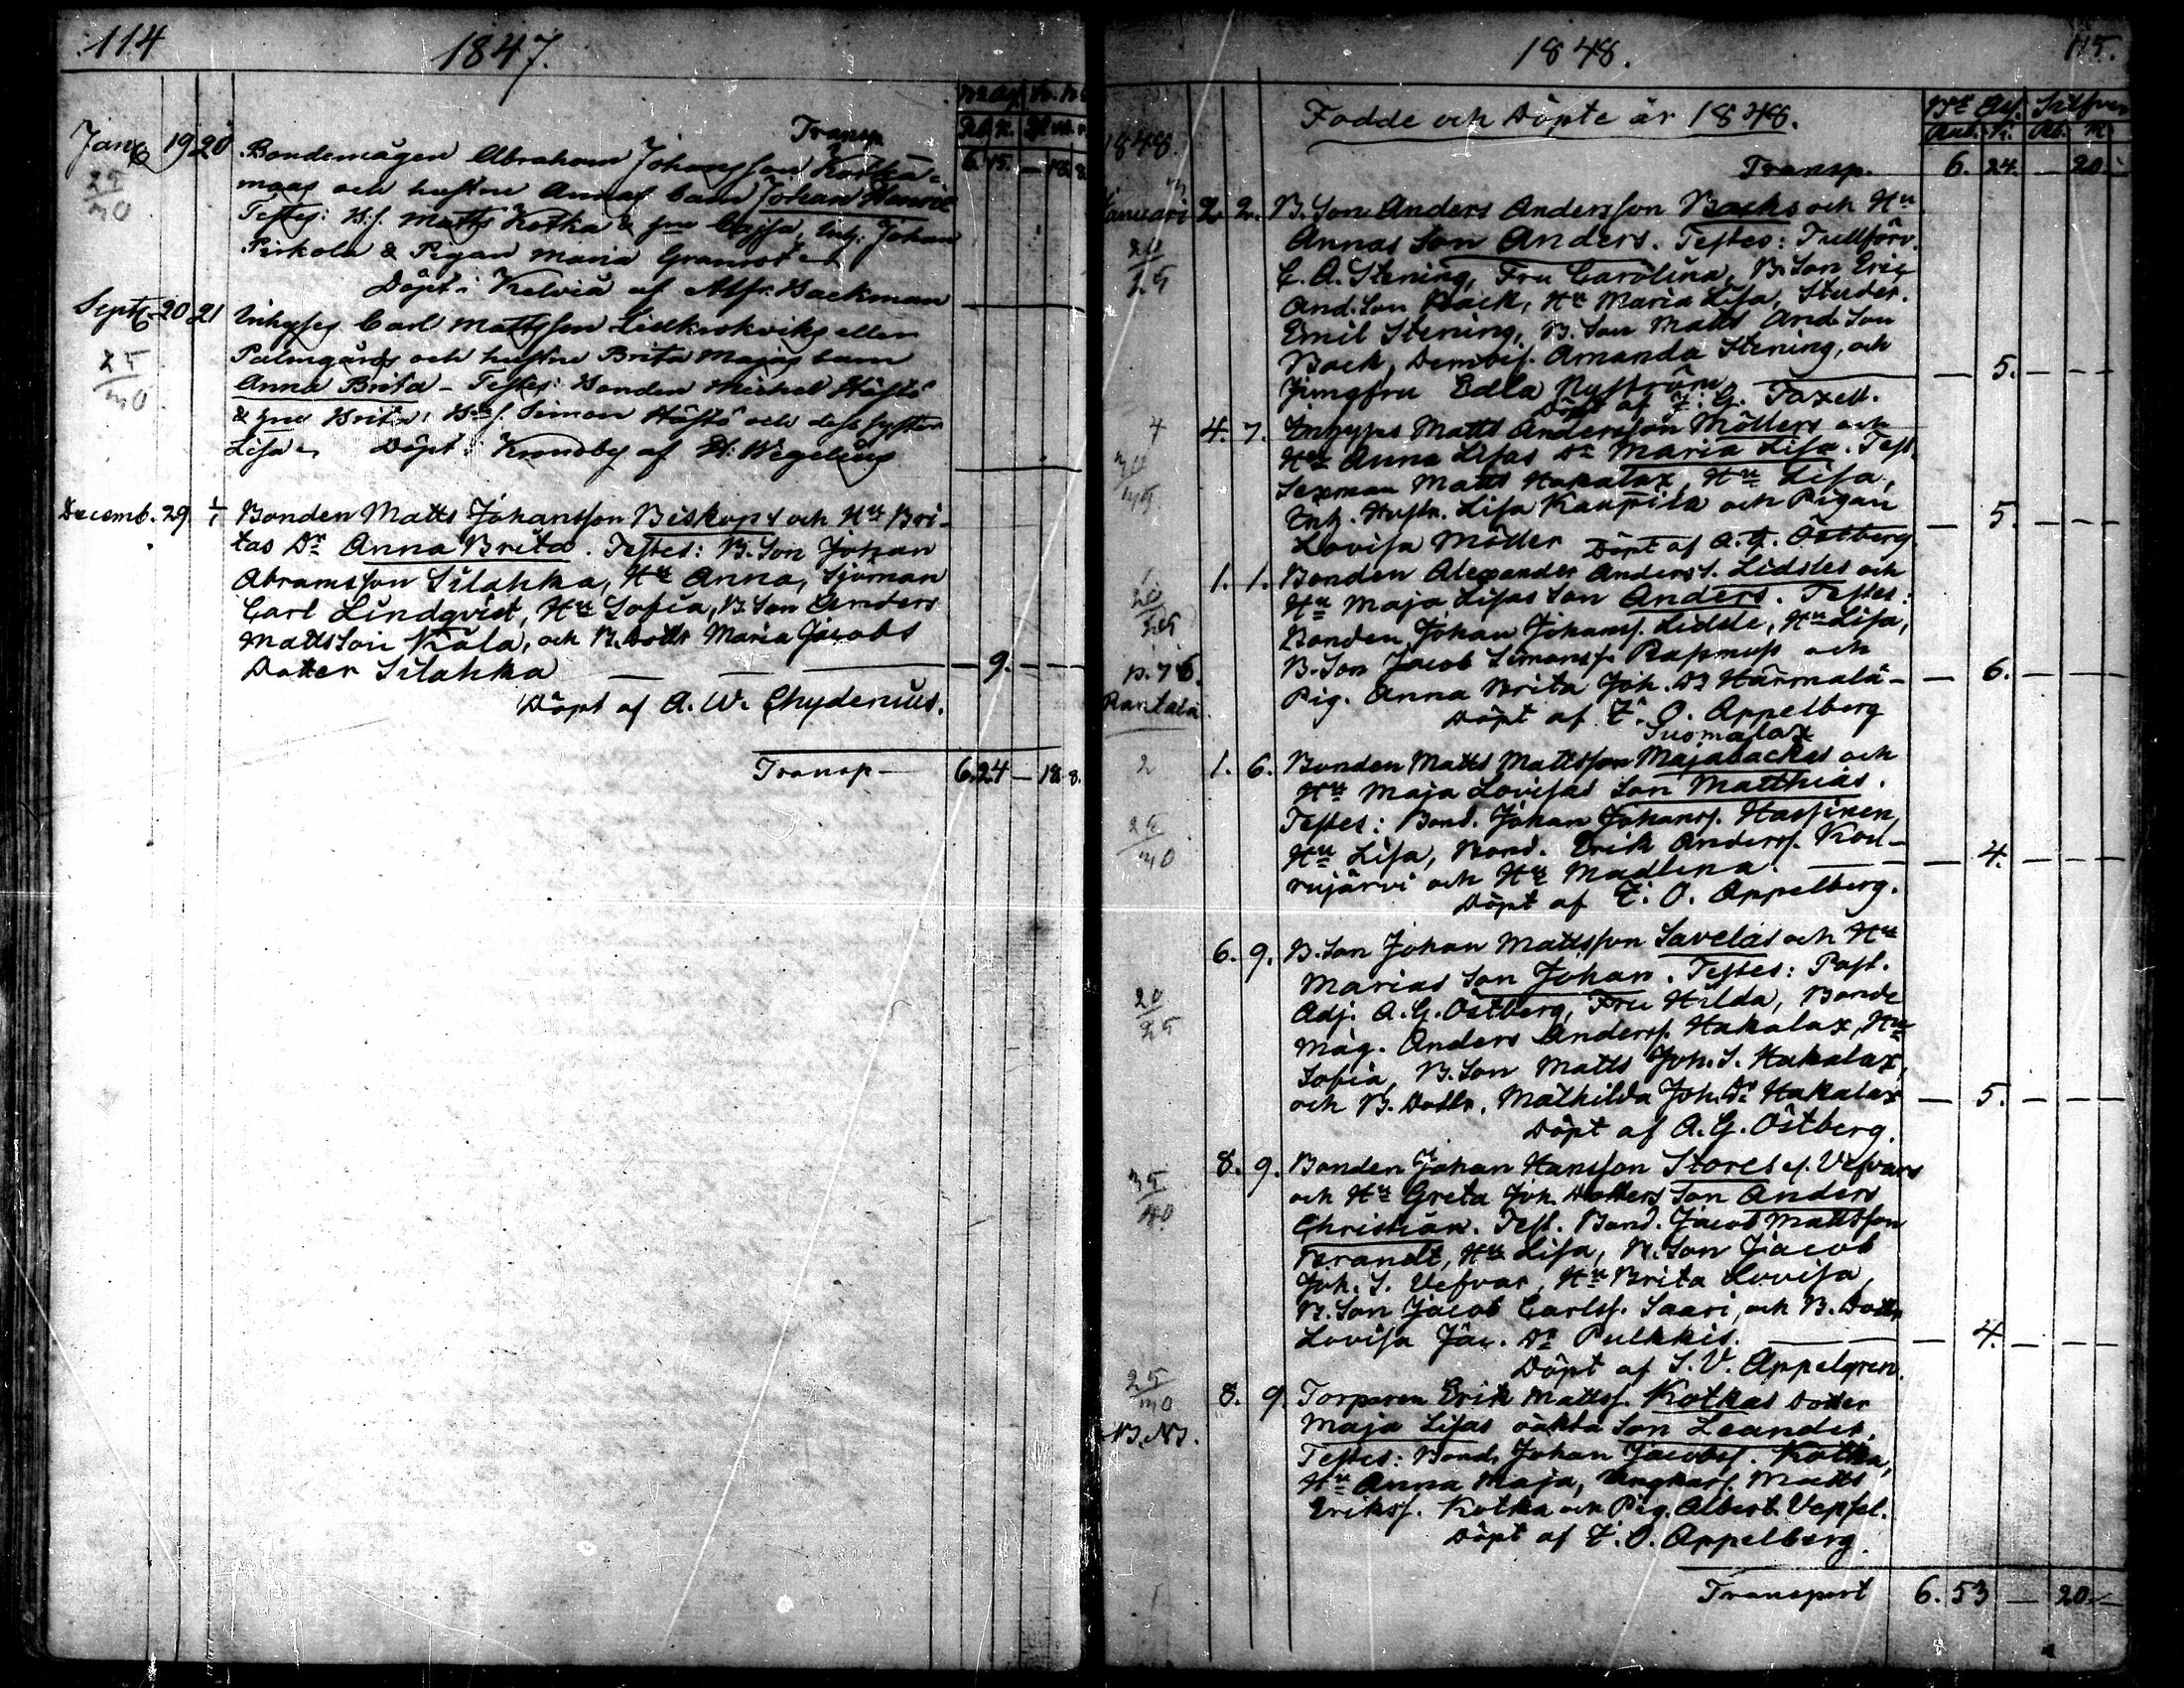 114
1847.
Transp.
6. 15. — 18. 8.
Jan. 19 20 Bondemågen Abraham Johansson Kotka=
25/30
maas och hustru Annas barn Johan Henric
Testes: B.S. Matts Kotka & hu Cajsa, Inh. Johan
Pirkola & Pigan Maria Granrot
Döpt i Kelviå af Alfr. Backman
Sept. 20 21 Inhyses Carl Mattsson Lillkrokviks eller
25/30
Palmgårds och hustru Brita Majas barn
Anna Brita – Testes: Bonden Michel Håfsö
& hu Brita, B.S. Simon Håfsö och dess syster
Lisa Döpt i Kronoby af H. Wegelius
Decemb. 29. 1/1 Bonden Matts Johansson Biskops och Hu Bri-
tas Dr Anna Brita. Testes: B. Son Johan
Abramsson Silahka, Hu Anna, Sjöman
Carl Lindqvist, Hu Sofia, B. Son Anders
Mattsson Kåla, och B. Dottr Maria Jacobs
Dotter Silahka — — — 9. —
Döpt af A. W. Chydenius.
Transp — 6. 24 — 18. 8.
1848.
115.
Födde och Döpte år 1848.
1848.
Transp. 6. 24. — 20. —
Januari 2. 2. B. Son Anders Andersson Backs och Hu
Annas Son Anders. Testes: Tullförv.
C. A. Stening, Fru Carolina, B. Son Eric
And. Son Back, Hu Maria Lisa, Studer.
Emil Stening, B. Son Matts And. Son
Back, Demois. Amanda Stening, och
Jungfru Edla Nyström — 5. —
Döpt af F. G. Taxell.
4. 7. Inhyses Matts Andersson Möllers och
Hu Anna Lisas Dr Maria Lisa. Test.
Sexman Matts Hakalax, Hu Lisa,
Inh. Hustr. Lisa Kaupila och Pigan
Lovisa Möller — 5. —
Döpt af A. G. Östberg
1. 1. Bonden Alexander Anders S. Lidstes och
Hu Maja Lisas Son Anders. Testes:
Bonden Johan Johanss. Lidste, Hu Lisa,
p. 76. B. Son Jacob Simonss. Rasmus och
Rantala. Pig. Anna Brita Joh. Dr Härmälä — 6. —
Döpt af F. O. Appelberg
Suomalax
1. 6. Bonden Matts Mattsson Majabackas och
Hu Maja Lovisas Son Matthias.
25/30
Testes: Bond. Johan Johanss. Hassinen,
Hu Lisa, Bond. Erik Anderss. Kou-
rujärvi och Hu Madlena. — 4. —
Döpt af F. O. Appelberg.
6. 9. B. Son Johan Mattsson Savelas och Hu
Marias Son Johan. Testes: Past.
20/25
Adj. A. G. Östberg, Fru Hilda, Bonde
Måg. Anders Anderss. Hakalax, Hu
Sofia, B. Son Matts Joh. S. Hakalax,
och B. Dottr. Mathilda Joh. Dr Hakalax — 5. —
Döpt af A. G. Östberg.
8. 9. Bonden Johan Hansson Stores el. Vefvars
35/40
och Hu Greta Joh. Dotters Son Anders
Christian. Test. Bond. Jacob Mattsson
Brandt, Hu Lisa, B. Son Jacob
Joh. S. Vefvar, Hu Brita Lovisa,
B. Son Jacob Carlss. Saari, och B. Dottr
Lovisa Jac. Dr Pulkkis. — 4. —
Döpt af S. V. Appelgren.
25/30
8. 9. Torparen Erik Mattss. Kotkas Dotter
N.B. Maja Lisas oäkta Son Leander.
Testes: Bond. Johan Jacobss. Kotka,
Hu Anna Maja, Ungkarl. Matts
Erikss. Kotka och Pig. Albert. Vepsel.
Döpt af F. O. Appelberg.
Transport 6. 53 — 20. —